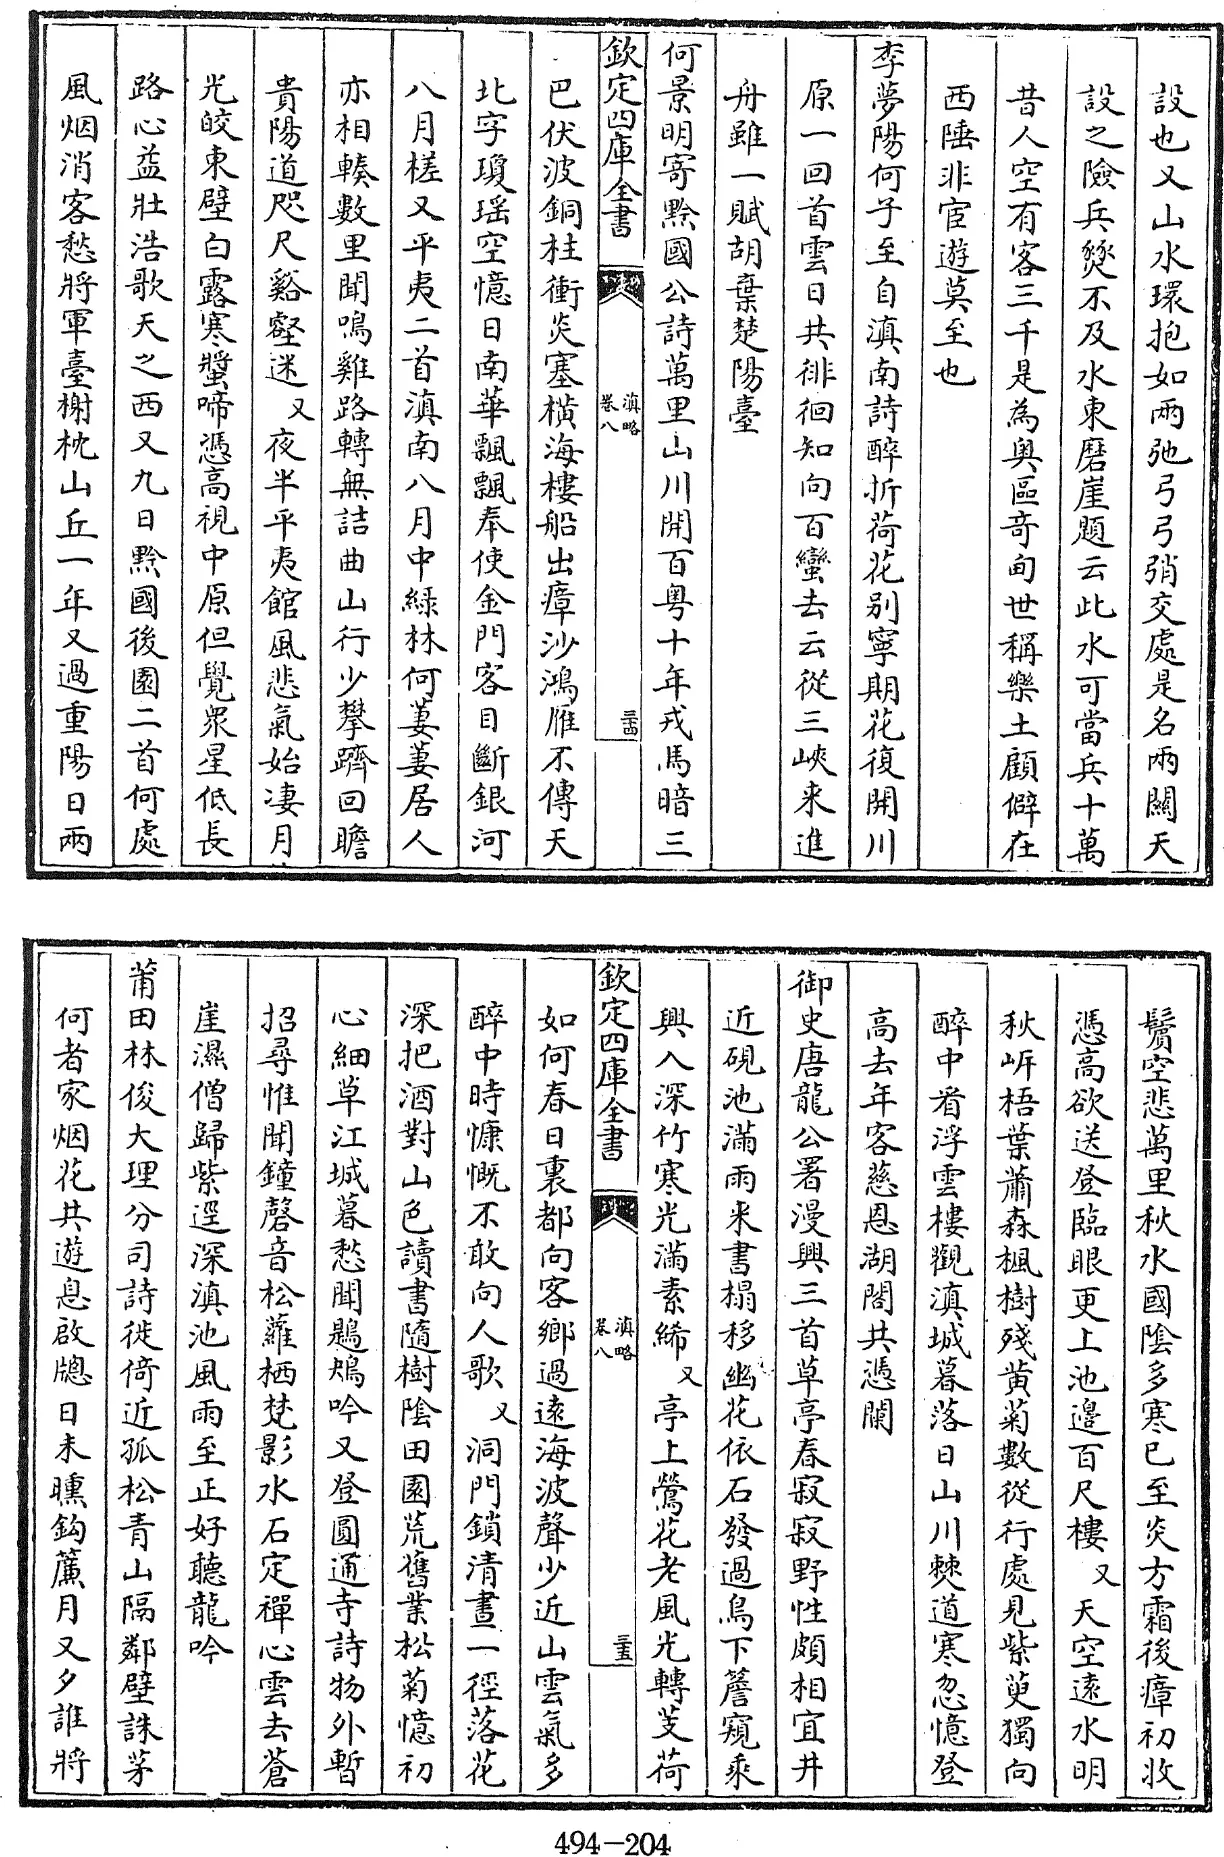 設也又山水環抱如兩弛弓弓弰交處是名兩關天
設之險兵燹不及水東磨崖題云此水可當兵十萬
昔人空有客三千是為奥區竒甸世稱樂土顧僻在
西陲非宦遊莫至也
李夢陽何子至自滇南詩醉折荷花别寧期花復開川
原一回首雲日共徘徊知向百蠻去云從三峽来進
舟雖一賦胡棄楚陽臺
何景明寄黔國公詩萬里山川開百粤十年戎馬暗三
欽定四庫全書
滇略
卷八
三十四
巴伏波銅柱衝炎塞横海樓船出瘴沙鴻雁不傳天
北字瓊瑶空憶日南華飄飄奉使金門客目斷銀河
八月槎又平夷二首滇南八月中緑林何萋萋居人
亦相輳數里聞鳴雞路轉無詰曲山行少攀躋回瞻
貴陽道咫尺谿壑迷又夜半平夷館風悲氣始凄月
光皎東壁白露寒螿啼憑高視中原但覺衆星低長
路心益壯浩歌天之西又九日黔國後園二首何處
風烟消客愁將軍臺榭枕山丘一年又過重陽日兩
鬢空悲萬里秋水國陰多寒已至炎方霜後瘴初收
憑高欲送登臨眼更上池邉百尺樓又天空遠水明
秋㟁梧葉蕭森楓樹殘黄菊數從行處見紫萸獨向
醉中看浮雲樓觀滇城暮落日山川僰道寒忽憶登
高去年客慈恩湖閣共憑闌
御史唐龍公署漫興三首草亭春寂寂野性頗相宜井
近硯池滿雨来書榻移幽花依石發過鳥下簷窺乘
興入深竹寒光滿素絺又亭上鶯花老風光轉芰荷
欽定四庫全書
滇略
卷八
三十五
如何春日裏都向客鄉過遠海波聲少近山雲氣多
醉中時慷慨不敢向人歌又洞門鎖清晝一徑落花
深把酒對山色讀書隨樹陰田園荒舊業松菊憶初
心細草江城暮愁聞鶗鴂吟又登圓通寺詩物外暫
招尋惟聞鐘磬音松蘿栖梵影水石定禪心雲去蒼
崖濕僧歸紫逕深滇池風雨至正好聴龍吟
莆田林俊大理分司詩徙倚近孤松青山隔鄰壁誅茅
何者家烟花共遊息啟牕日未曛鈎簾月又夕誰將
494-204